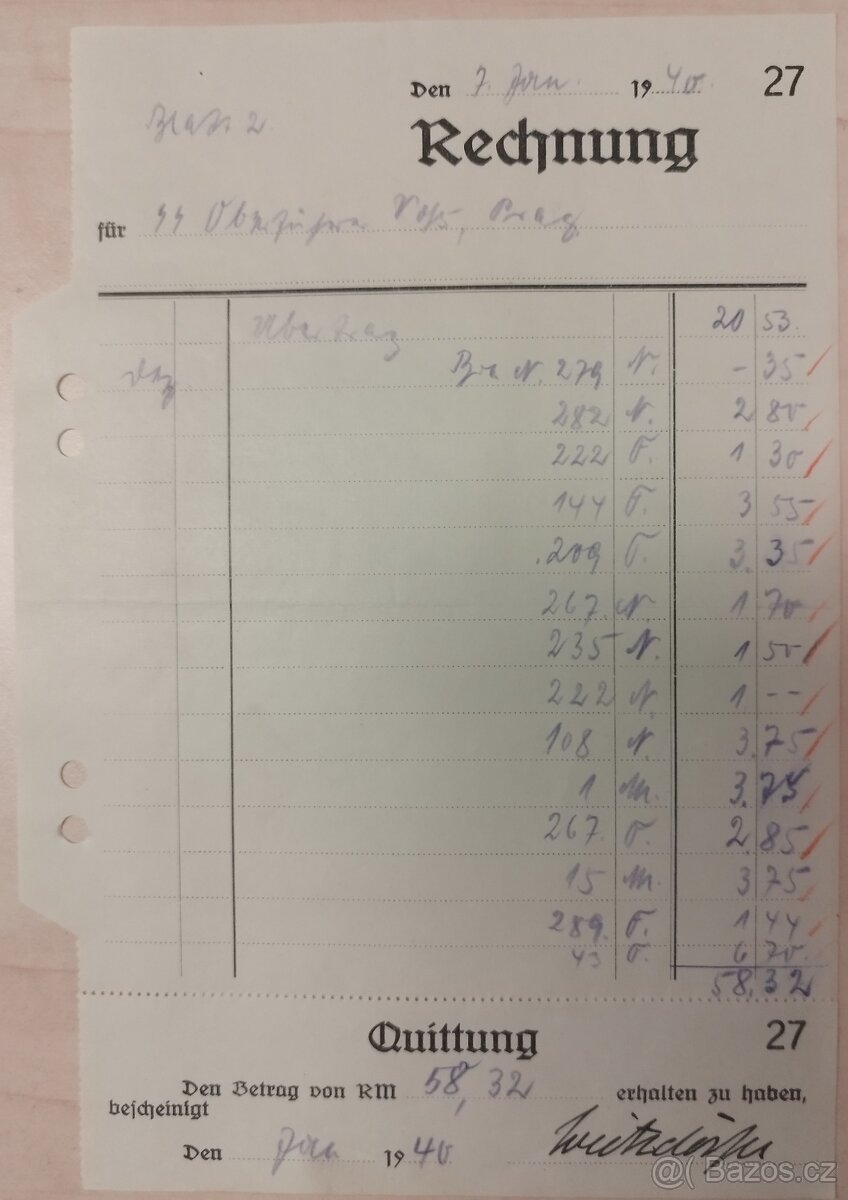 Den 7. Jan. 1940. 27
Blatt 2
Rechnung
für SS Oberführer Voß, Prag
Übertrag 20 53.
Dez Bra N. 279 N. - 35
282 N. 2 80
222 T. 1 30
144 T. 3 55
209 T. 3. 35
267. N. 1 70
235 N. 1 50
222 N. 1 --
108 N. 3.75
1 M. 3.75
267. T. 2.85
15 M. 3 75
289. T. 1 44
43 T. 6 70.
58,32
Quittung 27
Den Betrag von RM 58,32 erhalten zu haben,
bescheinigt
Den Jan 1940
@( Bazos.cz